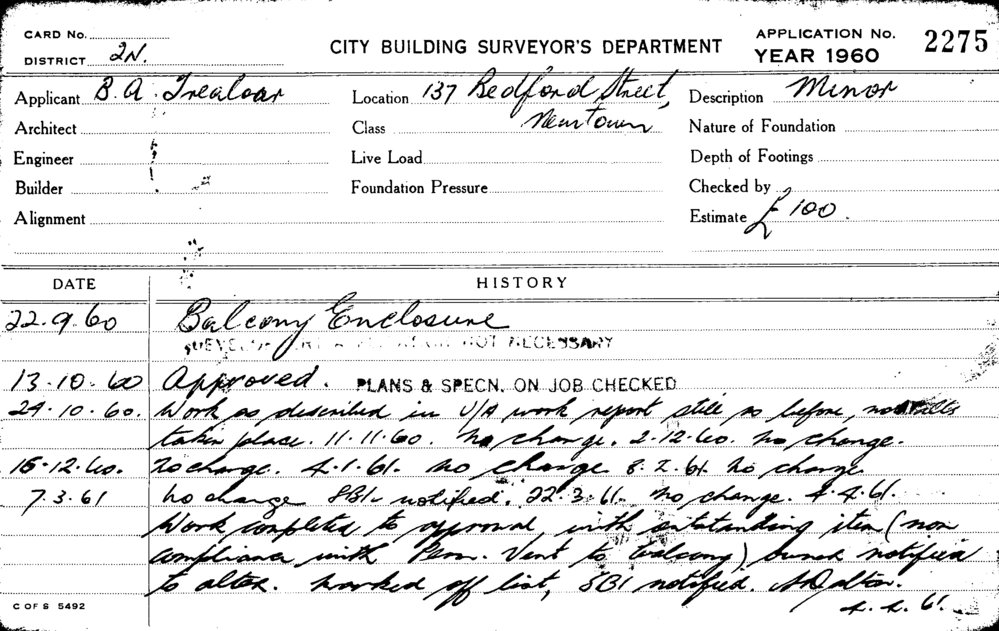 CARD No.
DISTRICT 2N.
CITY BUILDING SURVEYOR'S DEPARTMENT
APPLICATION No. 2275
YEAR 1960
Applicant B. A. Trealoar
Location 137 Bedford Street,
Newtown
Description Minor
Architect
Class
Nature of Foundation
Engineer
Live Load
Depth of Footings
Builder
Foundation Pressure
Checked by
Alignment
Estimate £100.
DATE HISTORY
22.9.60 Balcony Enclosure
NOT NECESSARY
13.10.60 Approved. PLANS & SPECN. ON JOB CHECKED
24.10.60. Work as described in U/A work report still as before, no
taken place. 11.11.60. No change. 2.12.60. No change.
15.12.60. No change. 4.1.61. No change. 8.2.61. No change
7.3.61 No change SBI notified. 22.3.61. No change. 4.4.61.
Work completed to approval with outstanding item (non
compliance with Perm. Vent to balcony) owner notified
to alter. Marked off list, SBI notified.
4.4.61.
C OF S 5492